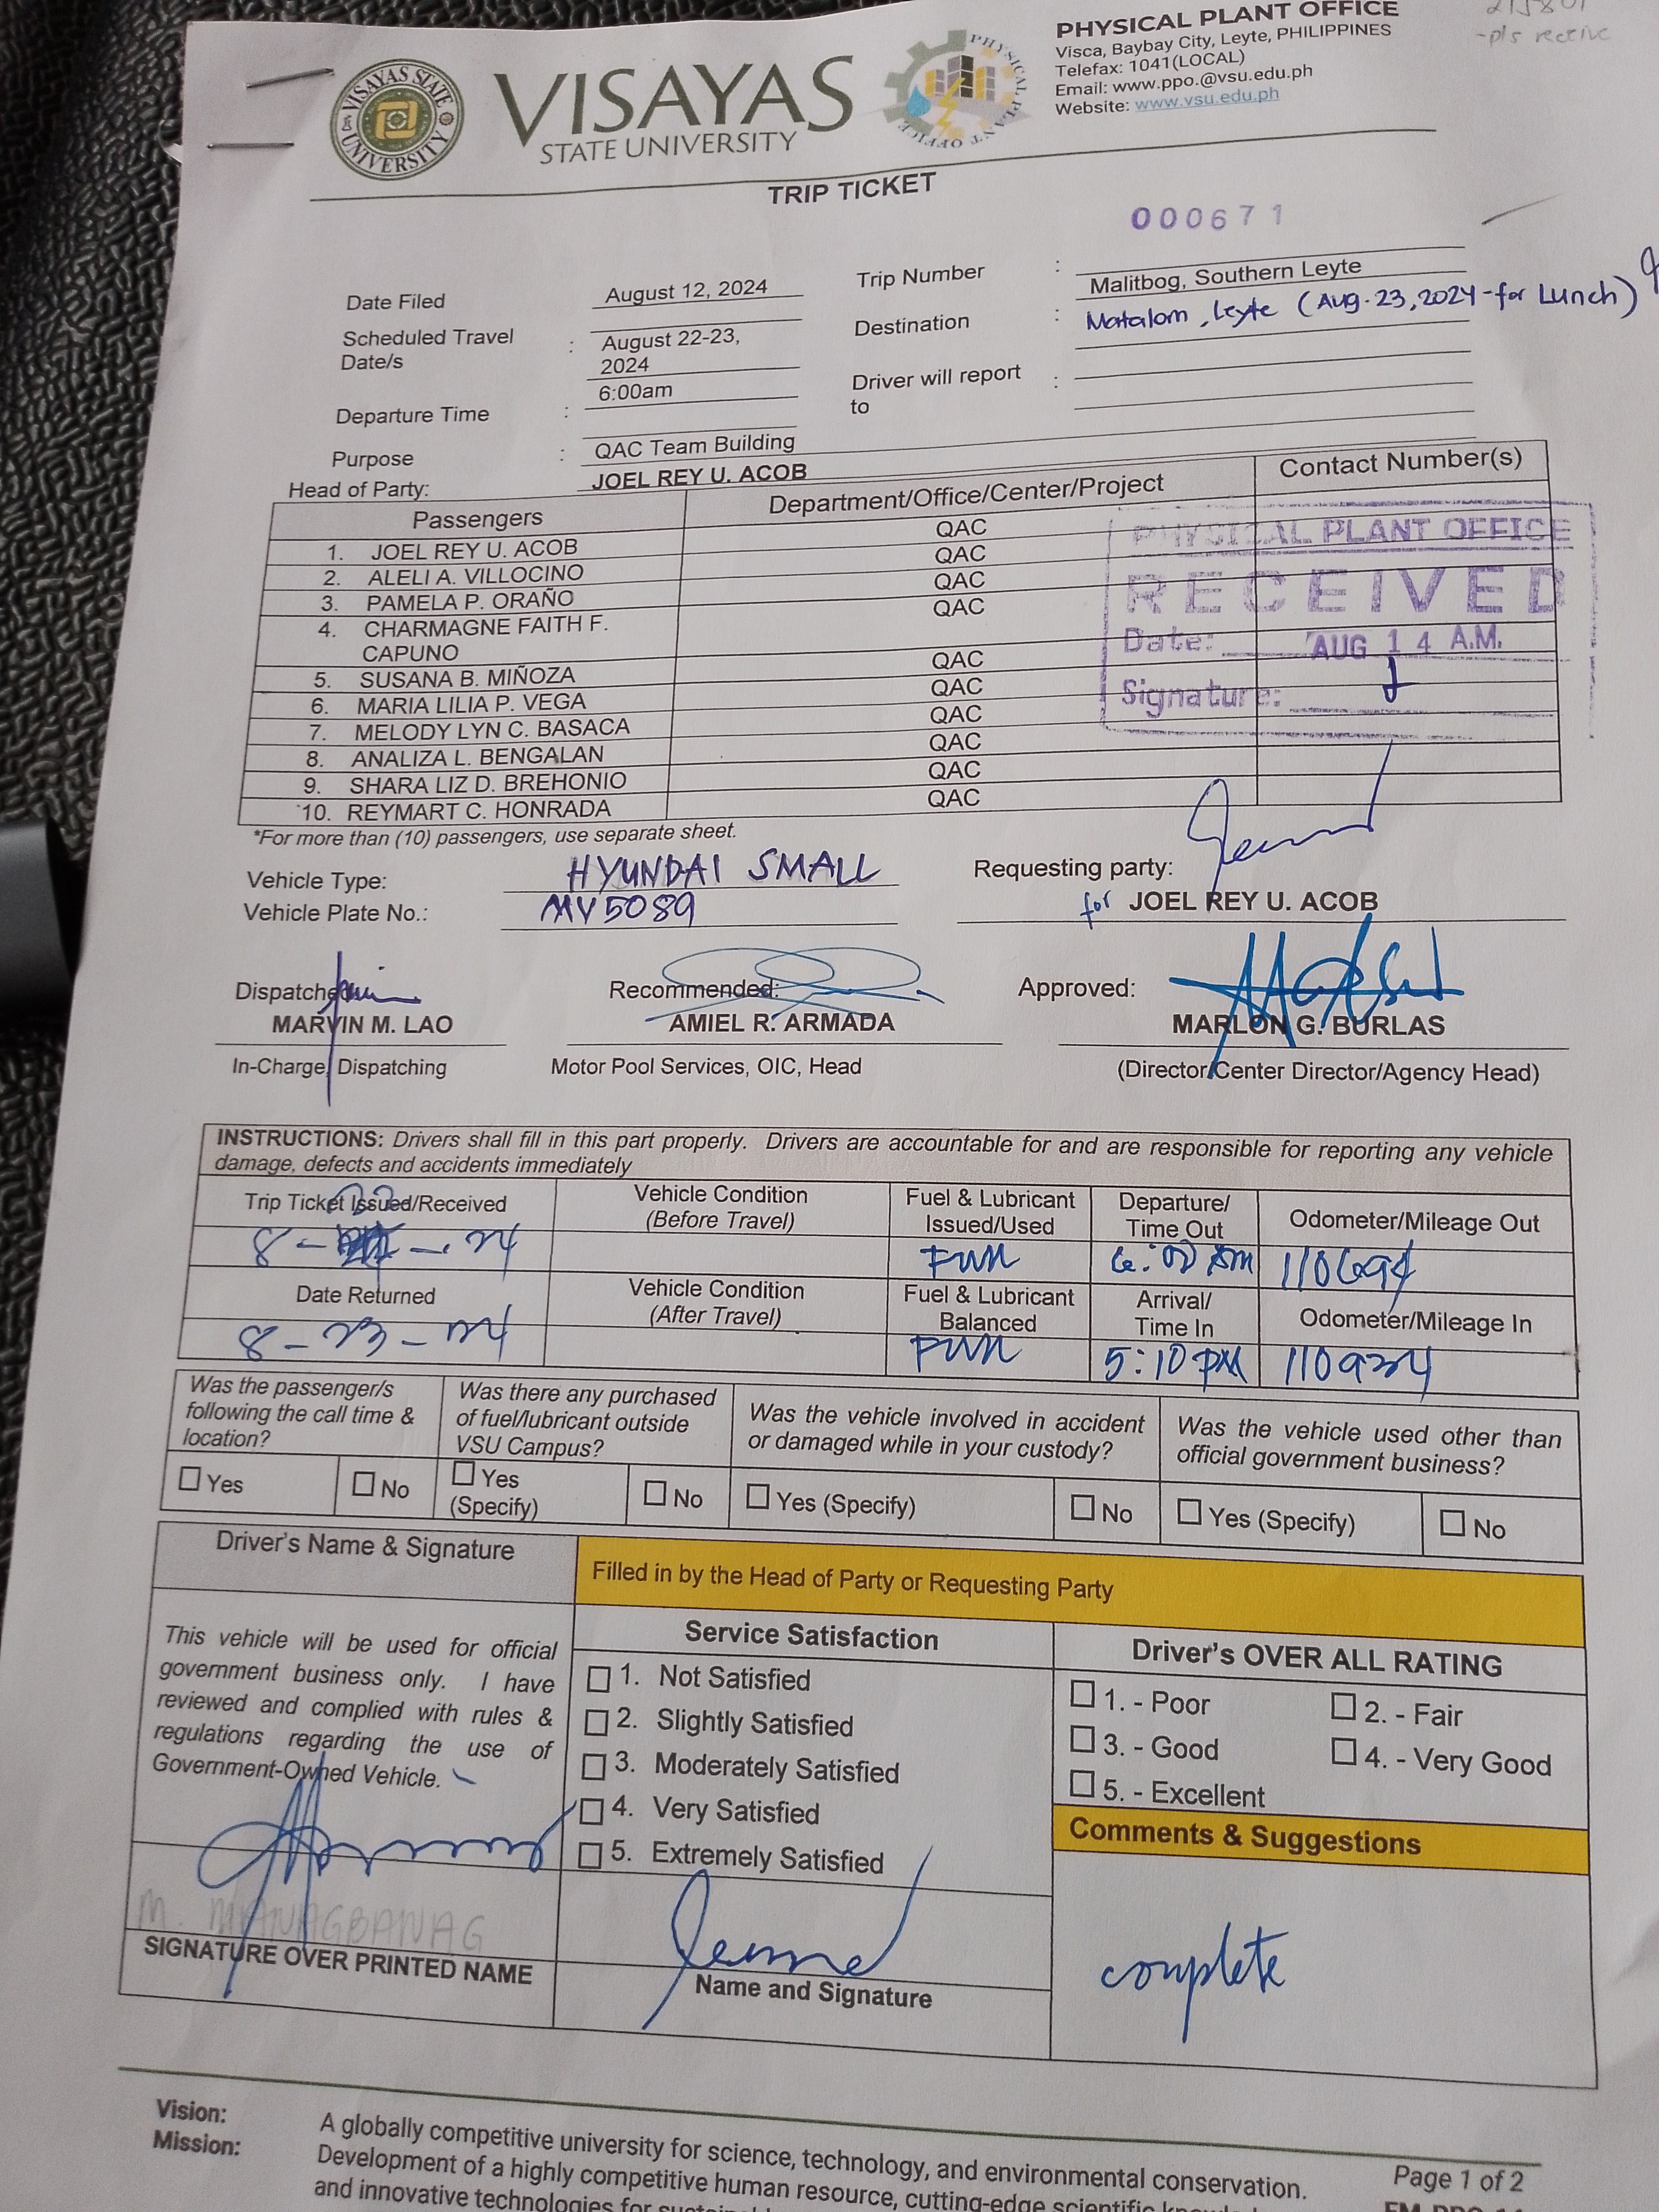 PHYSICAL PLANT OFFICE
Visca, Baybay City, Leyte, PHILIPPINES
Telefax: 1041(LOCAL)
Email: www.ppo.@vsu.edu.ph
Website: www.vsu.edu.ph
-pls receive
VISAYAS STATE UNIVERSITY
VISAYAS
STATE UNIVERSITY
PHYSICAL PLANT OFFICE
TRIP TICKET
000671
Date Filed August 12, 2024
Trip Number :
Scheduled Travel Date/s : August 22-23, 2024
Destination : Malitbog, Southern Leyte
Matalom, Leyte (Aug. 23, 2024 - for Lunch)
Departure Time : 6:00am
Driver will report to :
Purpose : QAC Team Building
Head of Party: JOEL REY U. ACOB
Passengers Department/Office/Center/Project Contact Number(s)
1. JOEL REY U. ACOB QAC
2. ALELI A. VILLOCINO QAC
3. PAMELA P. ORAÑO QAC
4. CHARMAGNE FAITH F. CAPUNO QAC
5. SUSANA B. MIÑOZA QAC
6. MARIA LILIA P. VEGA QAC
7. MELODY LYN C. BASACA QAC
8. ANALIZA L. BENGALAN QAC
9. SHARA LIZ D. BREHONIO QAC
10. REYMART C. HONRADA QAC
PHYSICAL PLANT OFFICE
RECEIVED
Date: AUG 14 A.M.
Signature:
*For more than (10) passengers, use separate sheet.
Vehicle Type: HYUNDAI SMALL
Vehicle Plate No.: MV5089
Requesting party:
for JOEL REY U. ACOB
Dispatched
MARVIN M. LAO
In-Charge, Dispatching
Recommended:
AMIEL R. ARMADA
Motor Pool Services, OIC, Head
Approved:
MARLON G. BURLAS
(Director/Center Director/Agency Head)
INSTRUCTIONS: Drivers shall fill in this part properly. Drivers are accountable for and are responsible for reporting any vehicle
damage, defects and accidents immediately
Trip Ticket Issued/Received
8-22-24
Vehicle Condition
(Before Travel)
Fuel & Lubricant
Issued/Used
Full
Departure/
Time Out
6:00 AM
Odometer/Mileage Out
110694
Date Returned
8-23-24
Vehicle Condition
(After Travel)
Fuel & Lubricant
Balanced
Full
Arrival/
Time In
5:10 PM
Odometer/Mileage In
110934
Was the passenger/s
following the call time &
location?
Yes No
Was there any purchased
of fuel/lubricant outside
VSU Campus?
Yes (Specify) No
Was the vehicle involved in accident
or damaged while in your custody?
Yes (Specify) No
Was the vehicle used other than
official government business?
Yes (Specify) No
Driver's Name & Signature
Filled in by the Head of Party or Requesting Party
This vehicle will be used for official
government business only. I have
reviewed and complied with rules &
regulations regarding the use of
Government-Owned Vehicle.
M. MANAGBANAG
SIGNATURE OVER PRINTED NAME
Service Satisfaction
1. Not Satisfied
2. Slightly Satisfied
3. Moderately Satisfied
4. Very Satisfied
5. Extremely Satisfied
Name and Signature
Driver's OVER ALL RATING
1. - Poor 2. - Fair
3. - Good 4. - Very Good
5. - Excellent
Comments & Suggestions
complete
Vision: A globally competitive university for science, technology, and environmental conservation.
Mission: Development of a highly competitive human resource, cutting-edge scientific
and innovative technologies for
Page 1 of 2